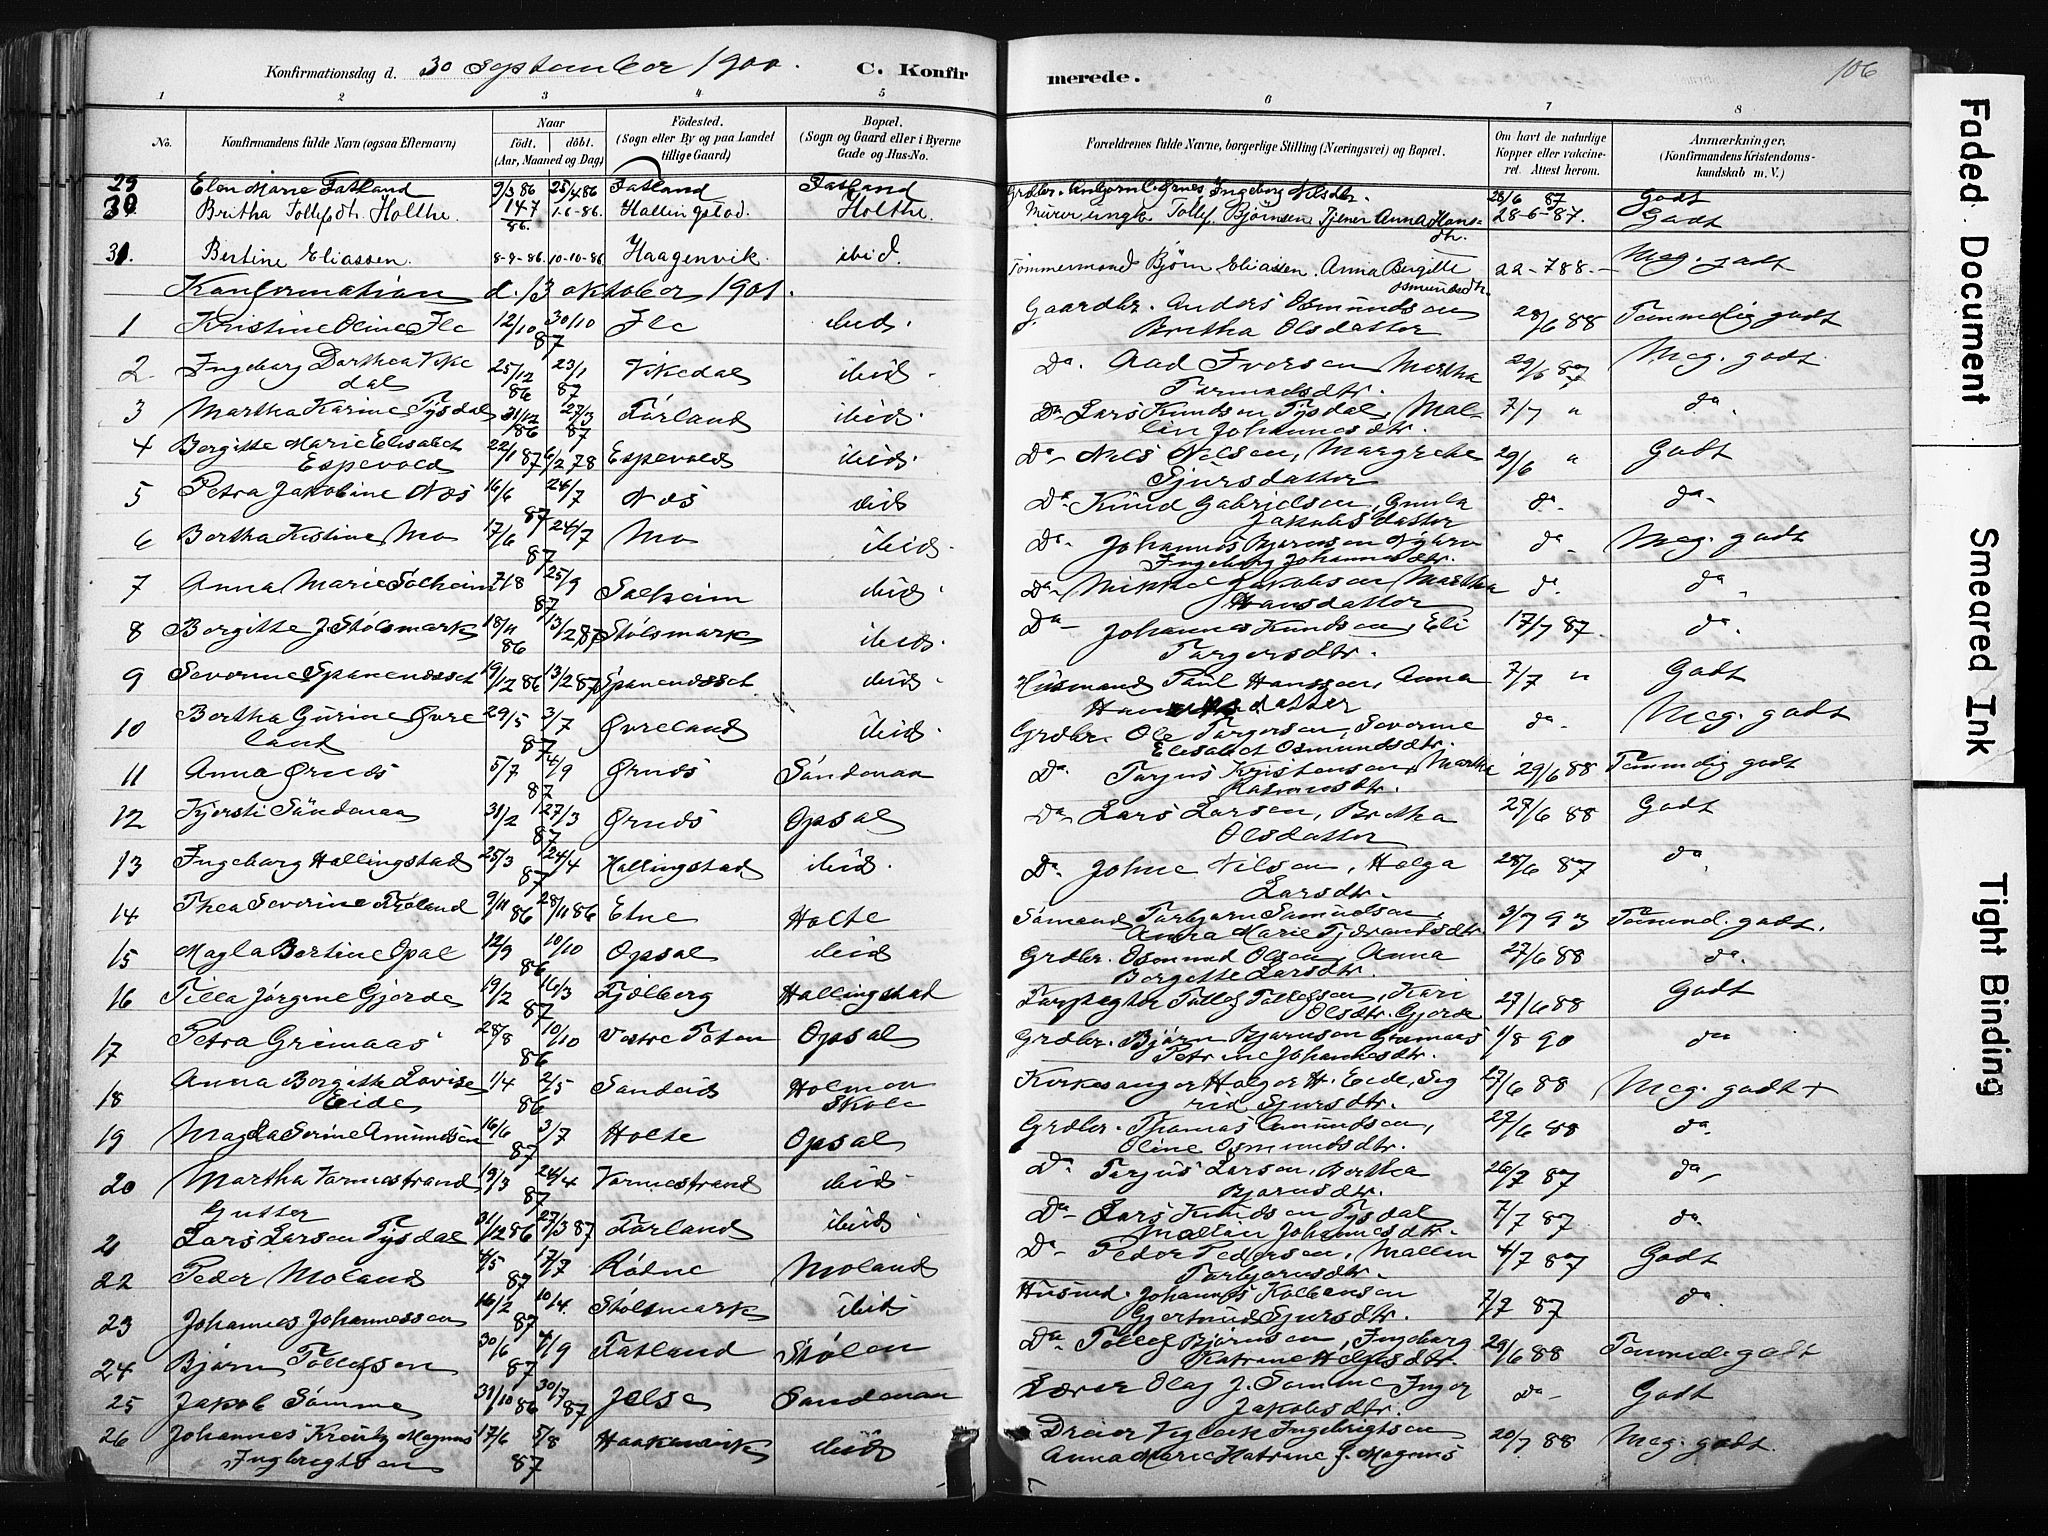 Konfirmationsdag d. 30 September 1900. C. Konfirmerede. 106
1 2 3 4 5 6 7 8
No. Konfirmandens fulde Navn (ogsaa Efternavn) Naar født. døbt. (Aar, Maaned og Dag) Fødested. (Sogn eller By og paa Landet tillige Gaard) Bopæl. (Sogn og Gaard eller i Byerne Gade og Hus-No. Forældrenes fulde Navne, borgerlige Stilling (Næringsvei) og Bopæl. Om havt de naturlige Kopper eller vakcineret. Attest herom. Anmærkninger, (Konfirmandens Kristendomskundskab m. V.)
29 Elen Marie Fatland 9/3 86 25/4 86 Fatland Fatland Ingeborg Nilsdtr. 28/6 87 Godt
30 Britha Tollefsdtr. Holthe. 14-7 86. 1-6-86. Hallingstad. Holthe. Tollef Bjørnsen Tjener Anna Hansdtr. 28-6-87. Godt
31. Bertine Eliassen. 8-9-86. 10-10-86 Haagenvik. ibid. Tømmermand Bjørn Eliassen, Anna Bergitte Osmundsdtr. 22-7 88.- Meg. godt
Konfirmation d. 13 oktober 1901.
1 Kristine Oline Ile 12/10 30/10 87 Ile ibid. Gaardbr. Anders Osmundsen
Bretha Olsdatter 28/6 88 Temmelig godt
2 Ingeborg Dorthea Vike
dal 25/12 86 23/1 87 Vikedal ibid. Do. Aad Iversen, Martha
Tormodsdtr. 29/6 87 Meg. godt
3 Martha Karine Tysdal 31/12 86 27/3 87 Førland ibid. Do Lars Knudsen Tysdal, Mal-
lin Johannesdtr. 7/7 " do.
4 Bergitte Marie Elisabet
Espevold 22/1 87 6/2 78 Espevold ibid. Do- Nils Nilsen, Margrete
Sjursdatter 29/6 " Godt
5 Petra Jakobine Næs 16/6 24/7 87 Næs ibid Do Knud Gabrielsen, Gunla
Jakobsdatter do. do-
6 Bertha Kistine Mo 17/6 24/7 87 Mo ibid. Do- Johannes Bjørnsen
Ingeborg Johannesdtr. do- Meg. godt
7 Anna Marie Solheim 7/8 25/9 87 Solheim ibid. Do- Mikkel Jakobsen, Martha
Hansdatter do. do
8 Bergitte J. Stølsmark 18/11 86 13/2 87 Stølsmark ibid. Do- Johannes Knudsen, Eli
Torgersdtr. 17/7 87. do.
9 Severine Spanendsset 19/12 86 13/2 87 Spanendsset ibid. Husmand Paul Hanssen, Anna
Hansdatter 7/7 " Godt
10 Bertha Gurine Øvre
land 29/5 3/7 87 Øvreland ibid. Grdbr. Ole Torgersen, Severine
Elisabet Osmundsdtr. do- Meg. godt
11 Anna Ørnes 5/7 4/9 87 Ørnes Søndenaa Do. Torjus Kristensen, Martha
Rasmusdtr. 29/6 88 Temmelig godt
12 Kjersti Søndenaa 31/2 27/3 87 Ørnes Opsal Do- Lars Larsen, Bretha
Olsdatter 27/6 88 Godt
13 Ingeborg Hallingstad 25/3 24/4 87 Hallingstad ibid. Do- Johne Nilsen, Helga
Larsdtr. 28/6 87 do
14 Thea Severine Frøland 9/11 86 28/11 86 Etne Holte Sømand Torbjørn Samuelsen
Anna Marie Tjerandsdtr. 3/7 93 Temmel. godt.
15 Magla Bertine Opsal 12/9 10/10 86 Opsal ibid Grdbr. Osmund Olsen, Anna
Bergitte Larsdtr. 27/6 88 do.
16 Tilla Jørgine Gjerde 19/2 16/3 87 Fjelberg Hallingstad Forpagter Tollef Tollefsen, Kari
Olsdtr. Gjerde 27/6 88 Godt
17 Petra Grimaas 28/8 10/10 86 Vestre Toten Opsal Grdbr. Bjørn Bjørnsen Grimaas
Petrine Johannesdtr. 1/8 90 do
18 Anna Bergitte Lovise
Eide 1/4 2/5 86 Sandeid Holmen
Skole Kirkesanger Holger H. Eide, Sig
rid Sjursdtr. 27/6 88 Meg. godt +
19 Magda Serine Amundsen 16/6 3/7 87 Holte Opsal Grdbr. Thomas Amundsen,
Oline Osmundsdtr. 27/6 88 do.
20 Martha Vormestrand 19/3 24/4 87 Vormestrand ibid. Do. Torjus Larsen, Bertha
Bjørnsdtr. 26/7 87 do,
Gutter
21 Lars Larsen Tysdal 31/12 86 27/3 87 Førland ibid. Do- Lars Knudsen Tysdal
Mallin Johannesdtr. 7/7 87 do.
22 Peder Moland 4/5 17/7 87 Rødne Moland Do- Peder Pedersen, Mallin
Torbjørnsdtr. 4/7 87 Godt
23 Johannes Johannessen 16/2 10/4. 87 Stølsmark ibid Husmd. Johannes Kolbensen
Gjertrud Sjursdtr. 7/7 87 do.
24 Bjørn Tollefsen 30/6 4/9 87 Fatland Stølen Do Tollef Bjørnsen, Ingeborg
Katrine Helgesdtr. 29/6 88 Temmel. godt
25 Jakob Sømme 31/10 86 30/7 87 Jelse Søndenaa Lærer Olaf J. Sømme, Inger
Jakobsdtr. do- Godt
26 Johannes Kreutz Magnus
Ingbregtsen 17/6 5/8 87 Haakenvik ibid Dreier Ingebrigtsen
Anna Marie Katrine J. Magnus 20/7 88 Meg. godt.
Faded Document
Smeared Ink
Tight Binding